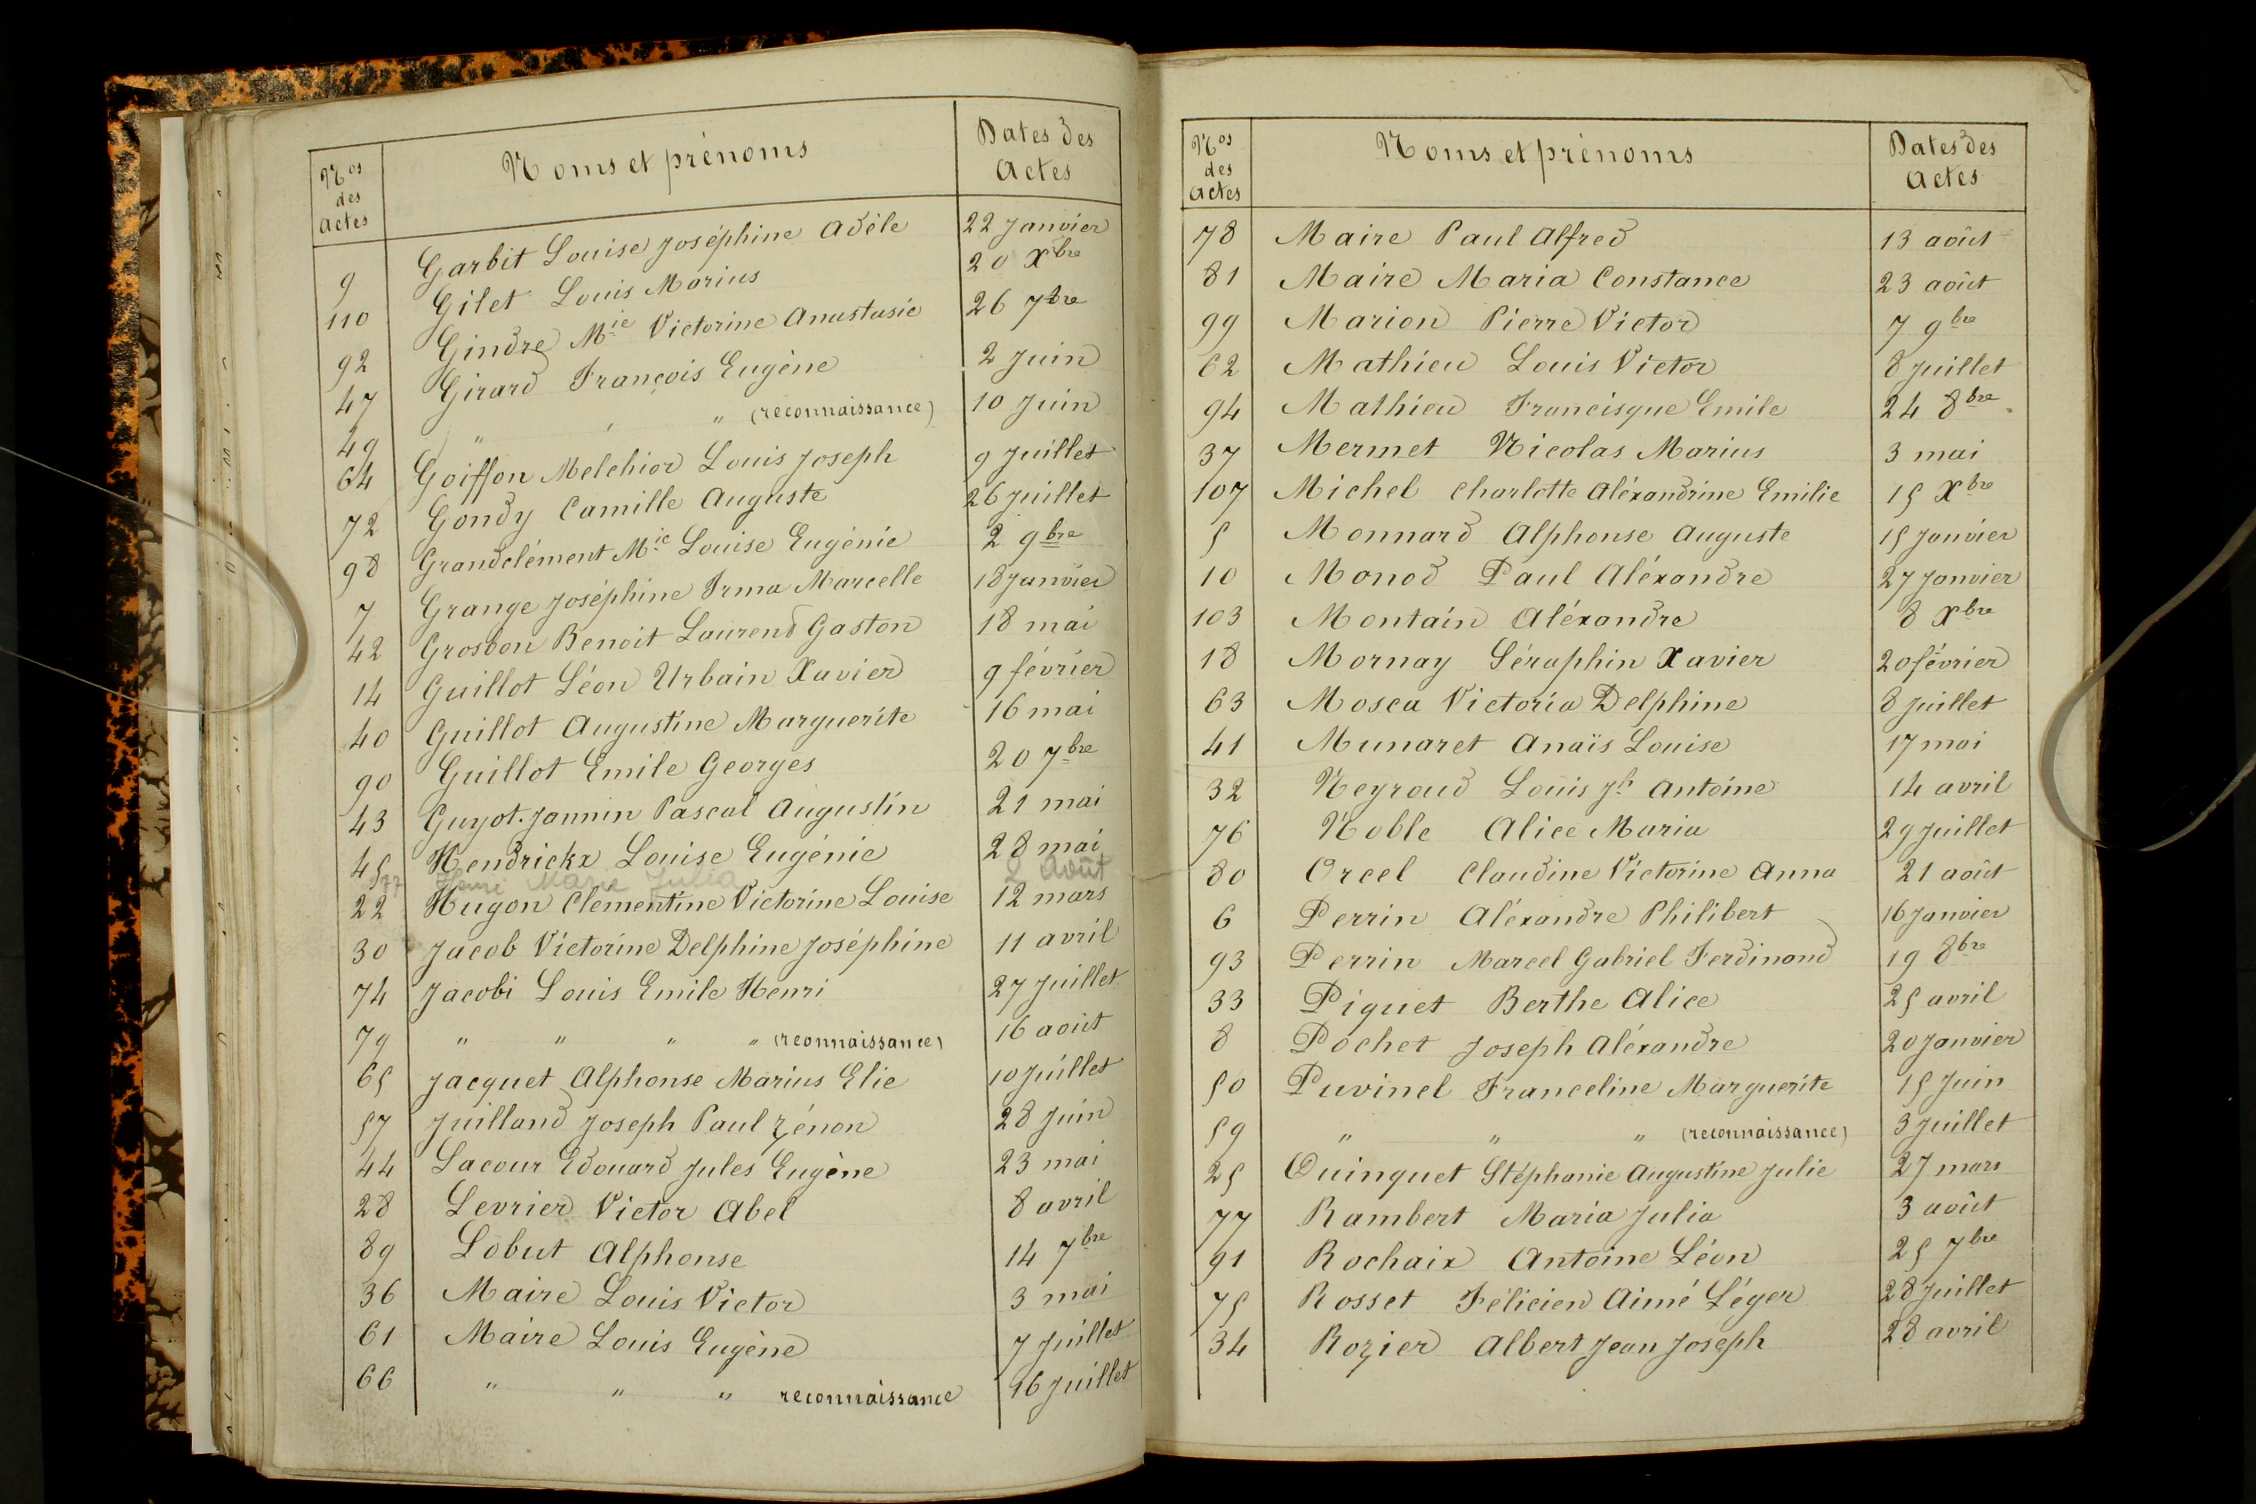 Nos des Actes Noms et prénoms Dates des Actes
9 Garbit Louise Joséphine Adèle 22 Janvier
110 Gilet Louis Marius 20 Xbre
92 Gindre Mie Victorine Anastasie 26 7bre
47 Girard François Eugène 2 Juin
49 " " " (reconnaissance) 10 Juin
64 Goiffon Melchior Louis Joseph 9 Juillet
72 Gondy Camille Auguste 26 Juillet
98 Grandclément Mie Louise Eugénie 2 9bre
7 Grange Joséphine Irma Marcelle 18 Janvier
42 Grosbon Benoit Laurend Gaston 18 mai
14 Guillot Léon Urbain Xavier 9 février
40 Guillot Augustine Marguerite 16 mai
90 Guillot Emile Georges 20 7bre
43 Guyot-Jannin Pascal Augustin 21 mai
45 Hendrickx Louise Eugénie 28 mai
77 Henri Marie Julia 2 Août
22 Hugon Clémentine Victorine Louise 12 mars
30 Jacob Victorine Delphine Joséphine 11 avril
74 Jacobi Louis Emile Henri 27 Juillet
79 " " " " (reonnaissance) 16 août
65 Jacquet Alphonse Marius Elie 10 Juillet
57 Juilland Joseph Paul Zénon 28 Juin
44 Lacour Edouard Jules Eugène 23 mai
28 Levrier Victor Abel 8 avril
89 Lobut Alphonse 14 7bre
36 Maire Louis Victor 3 mai
61 Maire Louis Eugène 7 Juillet
66 " " " reconnaissance 16 Juillet
Nos des Actes Noms et prénoms Dates des Actes
78 Maire Paul Alfred 13 août
81 Maire Maria Constance 23 août
99 Marion Pierre Victor 7 9bre
62 Mathieu Louis Victor 8 Juillet
94 Mathieu Francisque Emile 24 8bre
37 Mermet Nicolas Marius 3 mai
107 Michel Charlotte Aléxandrine Emilie 15 Xbre
5 Monnard Alphonse Auguste 15 Janvier
10 Monod Paul Aléxandre 27 Janvier
103 Montain Aléxandre 8 Xbre
18 Mornay Séraphin Xavier 20 février
63 Mosca Victoria Delphine 8 Juillet
41 Munaret Anaïs Louise 17 mai
32 Neyroud Louis Jh Antoine 14 avril
76 Noble Alice Maria 29 Juillet
80 Orcel Claudine Victorine Anna 21 août
6 Perrin Aléxandre Philibert 16 Janvier
93 Perrin Marcel Gabriel Ferdinand 19 8bre
33 Piquet Berthe Alice 25 avril
8 Pochet Joseph Aléxandre 20 Janvier
50 Puvinel Franceline Marguerite 15 Juin
59 " " " (reconnaissance) 3 Juillet
25 Quinquet Stéphanie Augustine Julie 27 mars
77 Rambert Maria Julia 3 août
91 Rochaix Antoine Léon 25 7bre
75 Rosset Félicien Aimé Léger 28 Juillet
34 Rozier Albert Jean Joseph 28 avril